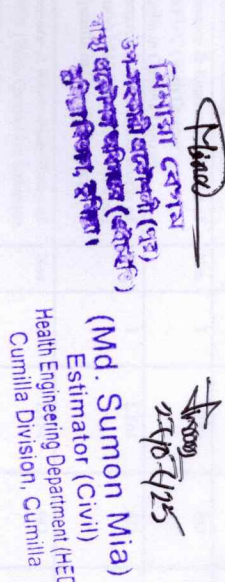 Mina
মিনারা বেগম
উপ-সহকারী প্রকৌশলী (পুর)
স্বাস্থ্য প্রকৌশল অধিদপ্তর
কুমিল্লা বিভাগ, কুমিল্লা।
27/07/25
(Md. Sumon Mia)
Estimator (Civil)
Health Engineering Department (HED
Cumilla Division, Cumilla